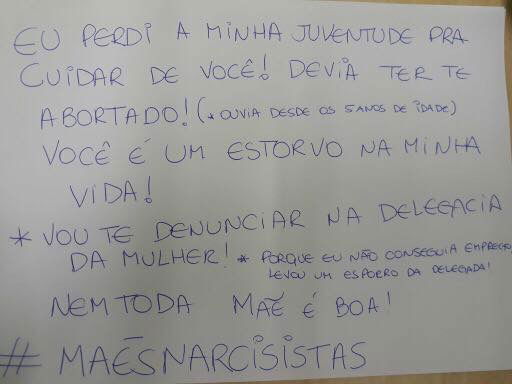 EU PERDI A MINHA JUVENTUDE PRA
CUIDAR DE VOCÊ! DEVIA TER TE
ABORTADO! (* OUVIA DESDE OS 5 ANOS DE IDADE)
VOCÊ É UM ESTORVO NA MINHA
VIDA!
* VOU TE DENUNCIAR NA DELEGACIA
DA MULHER! * PORQUE EU NÃO CONSEGUIA EMPREGO,
LEVOU UM ESPORRO DA DELEGADA!
NEM TODA MÃE É BOA!
# MÃESNARCISISTAS